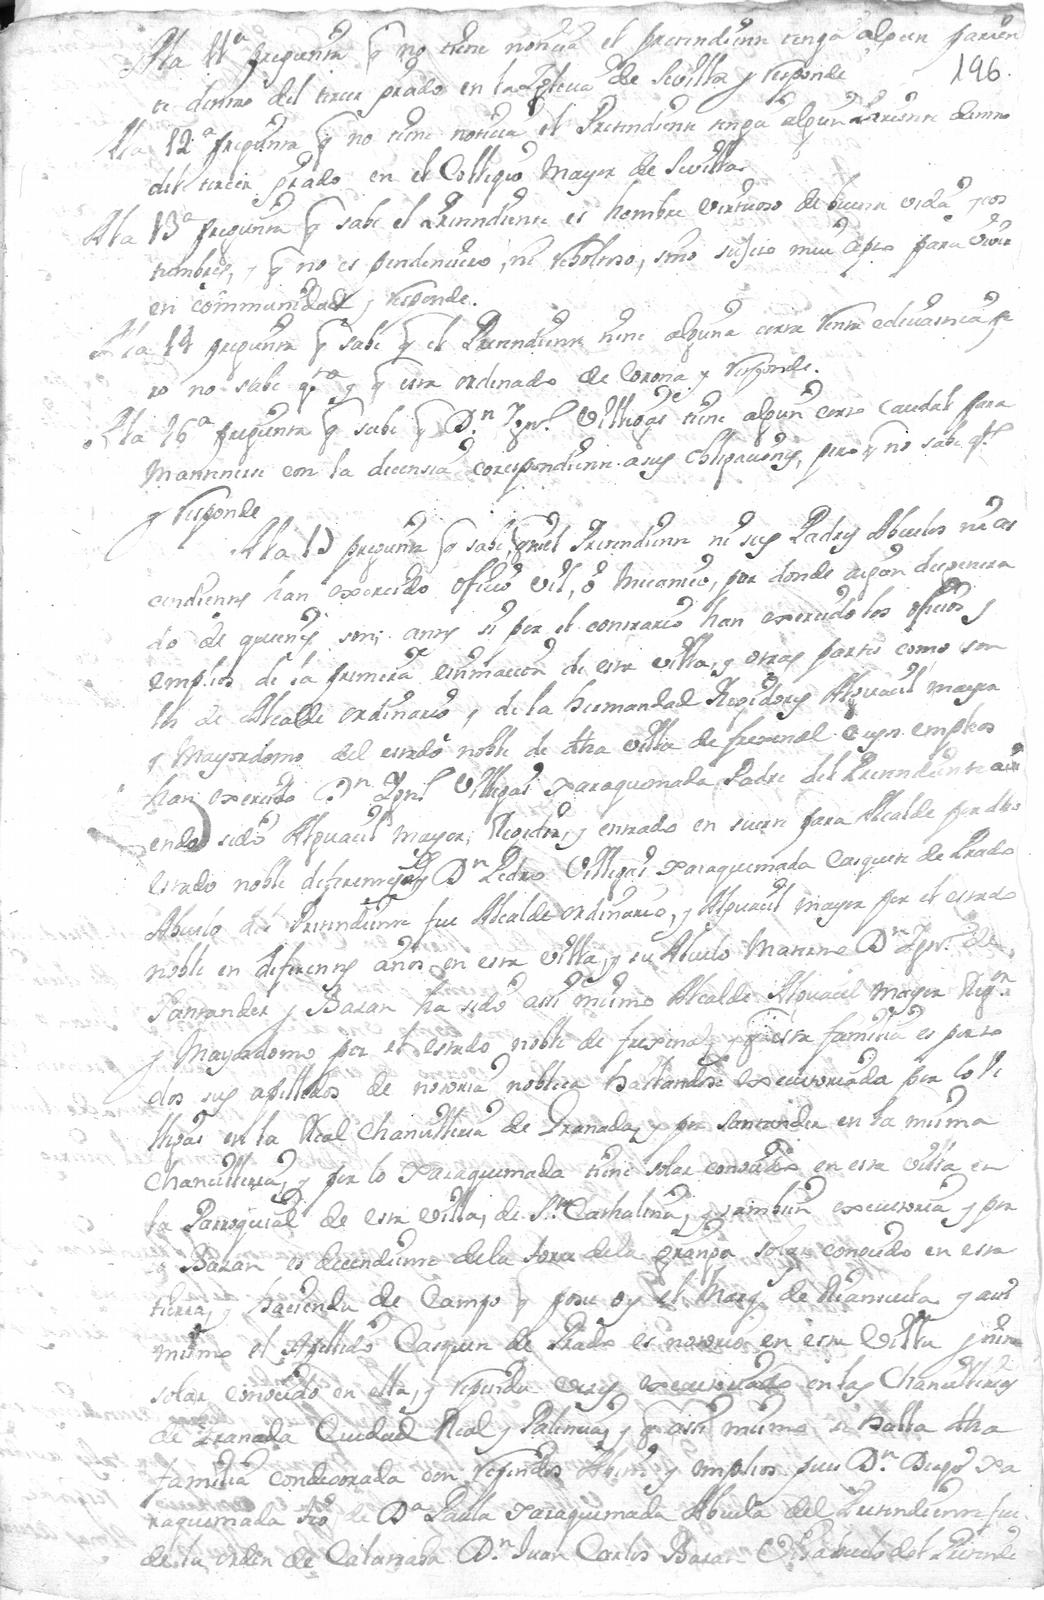 A la 11ª pregunta q no tiene noticia el pretendiente tenga algun parien
196.
te dentro del tercer grado en la Iglecia de Sevilla y responde
A la 12ª pregunta q no tiene noticia el Pretendiente tenga algun Pariente dentro
del tercer grado en el Collegio Mayor de Sevilla
A la 13ª pregunta q sabe el Pretendiente es hombre virtuoso de buena vida y cos
tumbres, y q no es pendenciero, ni reboltoso, sino sujeto mui apto para vivir
en cômmunidad y responde.
A la 14 pregunta q sabe q el Pretendiente tiene alguna corta renta eclesiastica pe
ro no sabe qta y q esta ordenado de Corona y responde.
A la 16ª pregunta q sabe q Dn Ign.º Villegas tiene algun corto caudal para
Mantenerse con la decensia correspondiente a sus obligaciones, pero q no sabe ql
y responde
A la 17 pregunta q sabe, q ni el Pretendiente ni sus Padres Abuelos ni as
cendientes han exercido oficio vil, ô mecanico, por donde aigan degenera
do de quienes son; antes si por el contrario han exercido los oficios y
empleos de la primera estimacion de esta villa, y otras partes como son
los de Alcalde ordinario y de la hermandad Rexidores Alguacil mayor
y Mayordomo del estado noble de dha villa de frexenal cuyos empleos
han exercido Dn Ign.º Villegas Jaraquemada Padre del Pretendiente avi
endo sido Alguacil mayor, Rexidor, y entrado en suerte para Alcalde por dho
estado noble diferentes Dn Pedro Villegas Jaraquemada Casquete de Prado
Abuelo del Pretendiente fue Alcalde ordinario, y Alguacil mayor por el estado
noble en diferentes años en esta villa, y su Abuelo Materno Dn Ign.º de
Santander y Bazan ha sido assi mismo Alcalde Alguacil mayor Regor
y Mayordomo por el estado noble de frexenal, y q esta familia es por to
dos sus apellidos de notoria nobleza hallandose executoriada por lo Vi
llegas en la Real Chancilleria de Granada, y por Santander en la misma
Chancilleria, y por lo Jaraquemada tiene solar conocido en esta villa en
la Parroquial de esta villa, de Sta Cathalina, y tambien executoria y por
Bazan es decendiente de la torre de la granja solar conocido en esta
tierra, y hacienda de Campo q posee oy el Marqs de Rianzuela y assi
mismo el Apellido Casquete de Prado es notorio en esta Villa y tiene
solar conocido en ella, y repetidas veces executoriado en las Chancillerias
de Granada Ciudad Real y Palencia, y q assi mismo se halla dha
familia condecorada con repetidos Abitos y empleos pues Dn Diego Ja
raquemada tio de Dª Paula Jaraquemada Abuela del Pretendiente fue
de la orden de Calatraba Dn Juan Carlos Bazan Visabuelo del Pretende